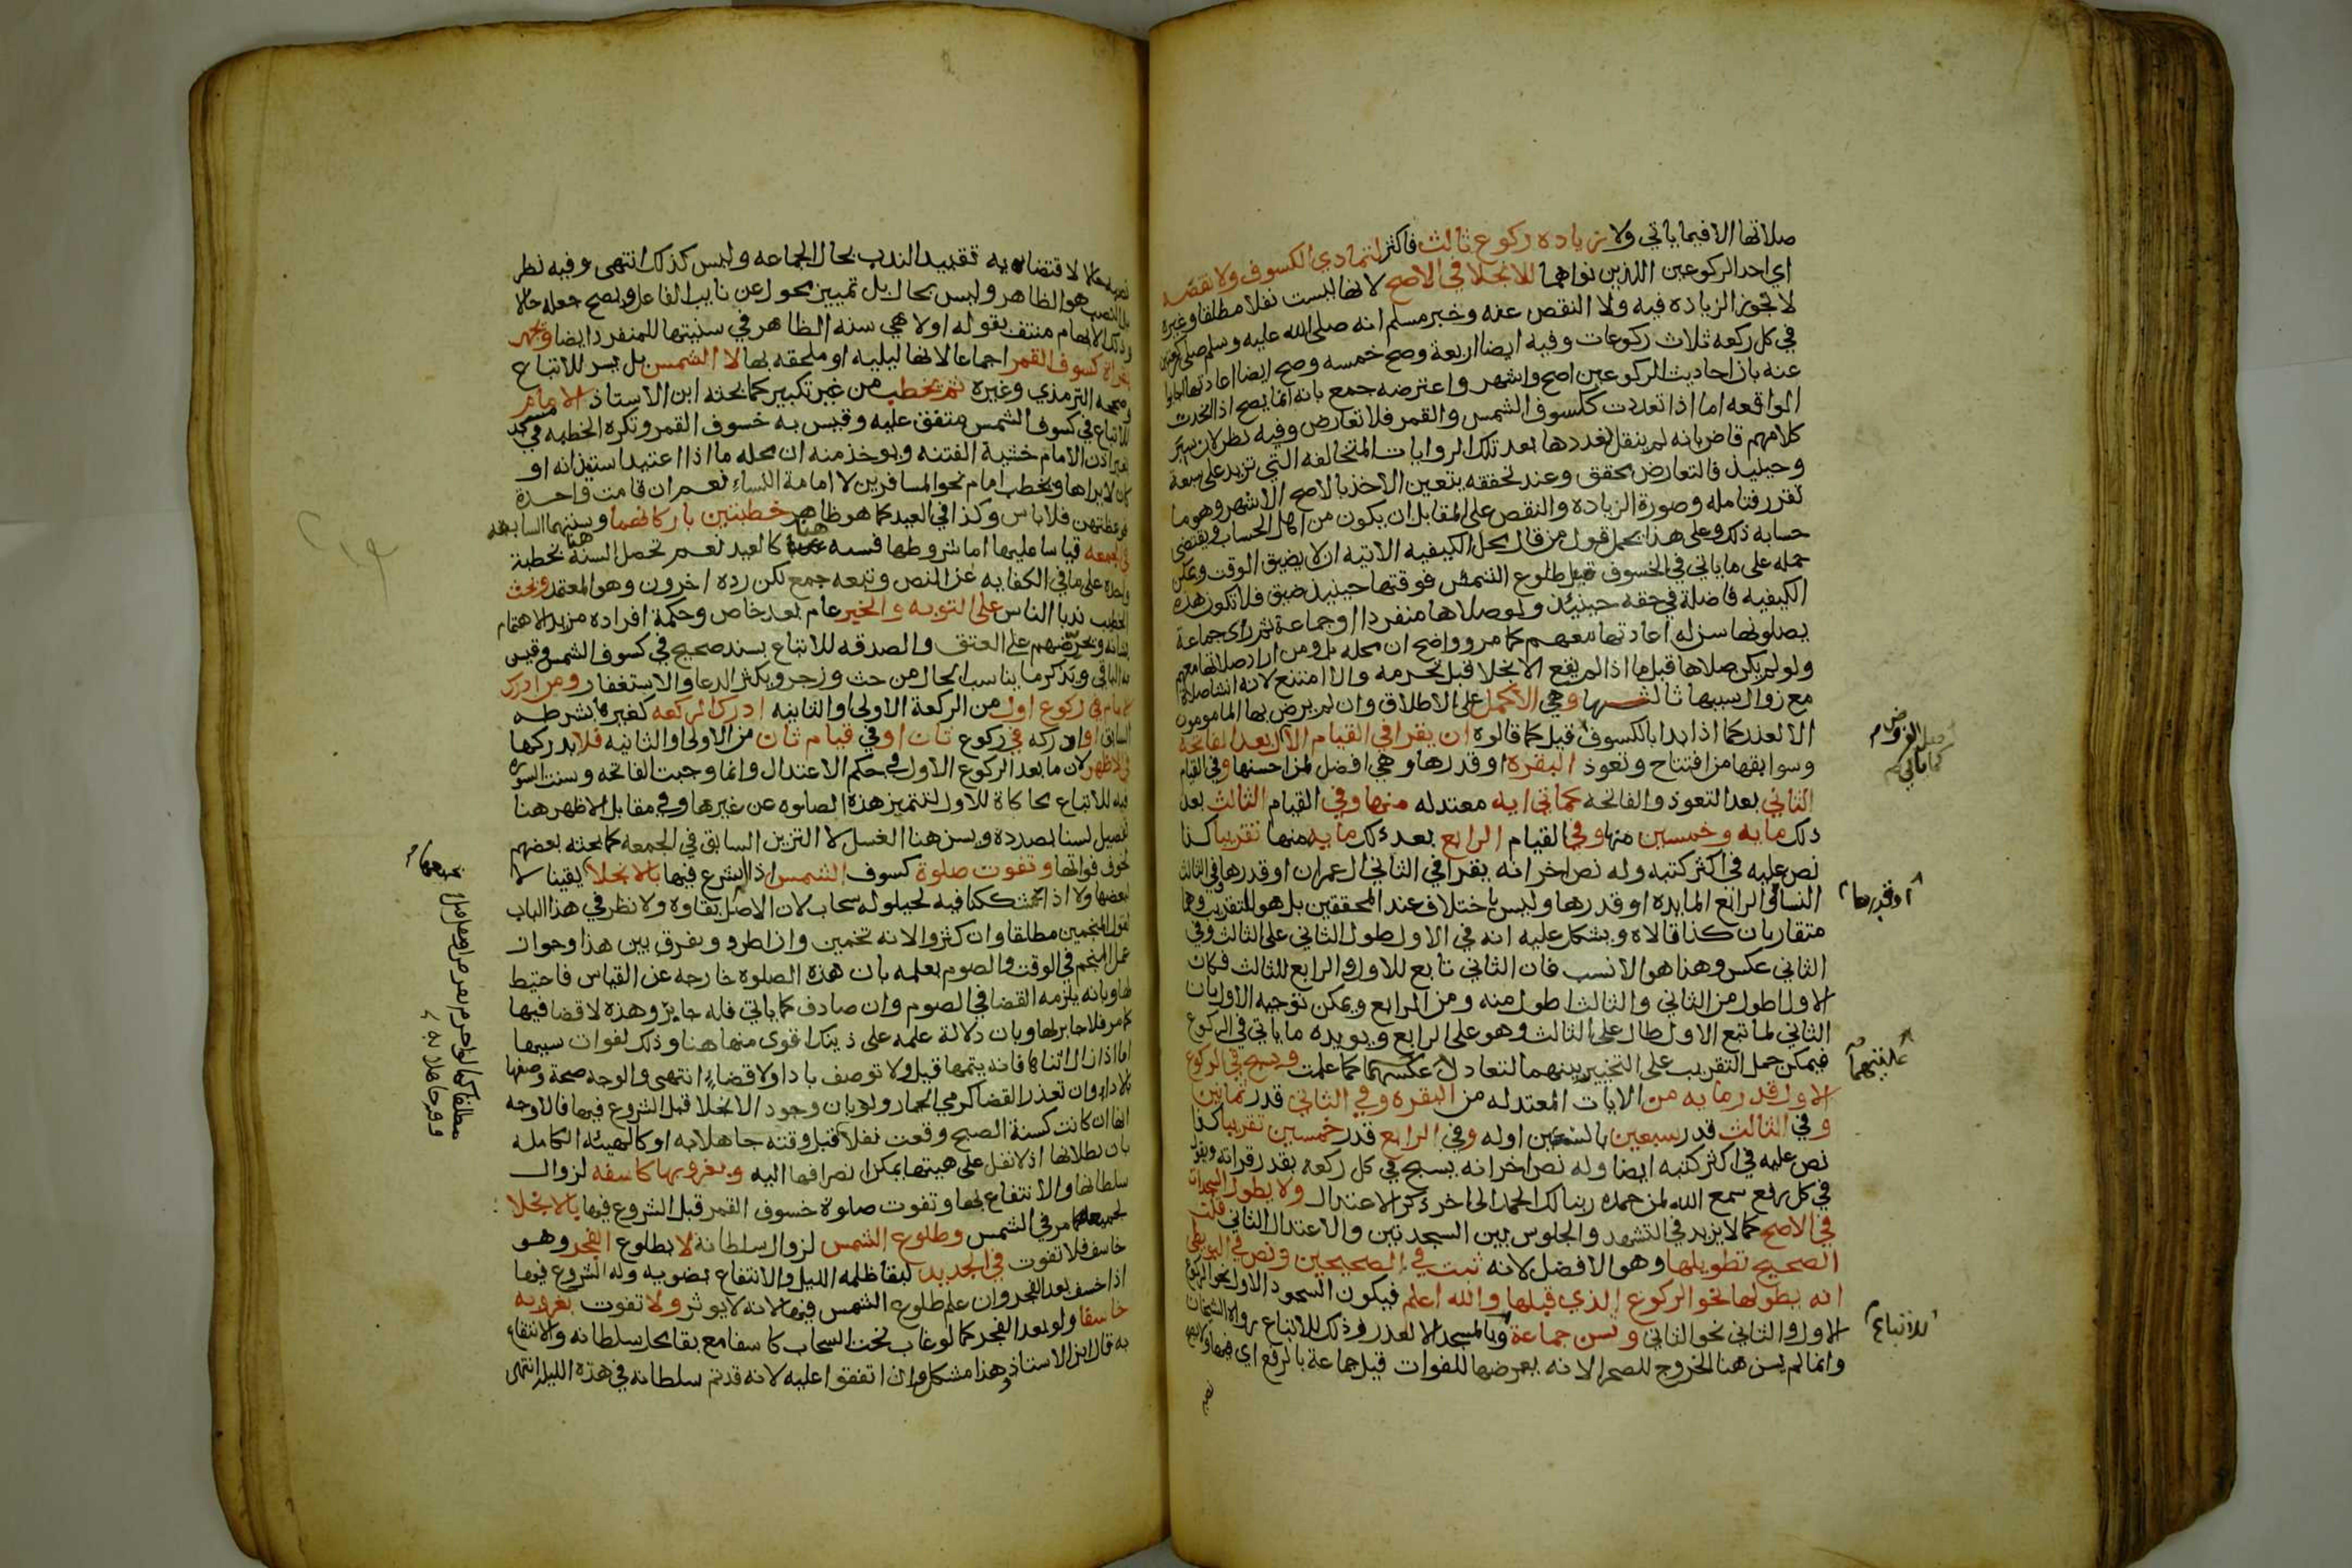 صلاتها الا فيما ياتي ولا زيادة ركوع ثالث فاكثر لتمادي الكسوف ولا نقصه
اي احد الركوعين اللذين نواهما للانجلا في الاصح لانها ليست نفلا مطلقا وغيره
لا تجوز الزياده فيه ولا النقص عنه وخبر مسلم انه صلى الله عليه وسلم صلى ركعتين
في كل ركعه ثلاث ركوعات وفيه ايضا اربعة وصح خمسه وصح ايضا اعادتها اجابوا
عنه بان احاديث الركوعين اصح واشهر واعترضه جمع بانه انما يصح اذا اتحدت
الواقعه اما اذا تعددت كلسوف الشمس والقمر فلا تعارض وفيه نظر لان سبر
كلامهم قاض بانه لم ينقل تعددها بعد تلك الروايات المتخالفه التي تزيد على سبعة
وحينيذ فالتعارض محقق وعند تحققه يتعين الاخذ بالاصح الاشهر وهو ما
تقرر فتامله وصورة الزياده والنقص على المقابل ان يكون من اهل الحساب ويقتضي
حسابه ذلك وعلى هذا يحمل قول من قال محل الكيفيه الاتيه ان لا يضيق الوقت ويمكن
حمله على ما ياتي في الخسوف قبل طلوع الشمس فوقتها حينيذ ضيق فلا تكون هذه
الكيفيه فاضلة في حقه حينيذ ولو صلاها منفردا او جماعة ثم راى جماعة
يصلونها سن له اعادتها معهم كما مر وواضح ان محله بل ومن اراد صلاتها معهم
ولو لم يكن صلاها قبل ما اذا لم يقع الانجلا قبل تحرمه والا امتنع لانه انشا صلاة
مع زوال سببها ثالثها وهي الاكمل على الاطلاق وان لم يرض بها المامومون
الا لعذر كما اذا بدا بالكسوف قبل كما قالوه ان يقرا في القيام الاول بعد الفاتحة
وسوابقها من افتتاح وتعوذ البقره او قدرها وهي افضل لمن احسنها وفي القيام
الثاني بعد التعوذ والفاتحه كماتي ايه معتدله منها وفي القيام الثالث بعد
ذلك مايه وخمسين منها وفي القيام الرابع بعد ذلك مايه منها تقريبا كذا
نص عليه في اكثر كتبه وله نص اخر انه يقرا في الثاني ال عمران او قدرها وفي الثالث
النسا وفي الرابع المايده او قدرها وليس باختلاف عند المحققين بل هو للتقريب وهما
متقاربان كذا قالاه ويشكل عليه انه في الاول طول الثاني على الثالث وفي
الثاني عكس وهذا هو الانسب فان الثاني تابع للاول والرابع للثالث فكان
الاول اطول من الثاني والثالث اطول منه ومن الرابع ويمكن توجيه الاول بان
الثاني لما تبع الاول طال على الثالث وهو على الرابع ويويده ما ياتي في الركوع
فيمكن حمل التقريب على التخيير بينهما لتعادل عكسهما كما علمت ويسبح في الركوع
الاول قدر مايه من الايات المعتدله من البقره وفي الثاني قدر ثمانين
وفي الثالث قدر سبعين بالسين اوله وفي الرابع قدر خمسين تقريبا كذا
نص عليه في اكثر كتبه ايضا وله نص اخر انه يسبح في كل ركعة بقدر قراته ويقول
في كل رفع سمع الله لمن حمده ربنا لك الحمد الى اخر ذكر الاعتدال ولا يطول السجدات
في الاصح كما لا يزيد في التشهد والجلوس بين السجدتين والاعتدال الثاني قلت
الصحيح تطويلها وهو الافضل لانه ثبت في الصحيحين ونص في البويطي
انه يطولها نحو الركوع الذي قبلها والله اعلم فيكون السجود الاول نحو الركوع
الاول والثاني نحو الثاني وتسن جماعة وبالمسجد الا لعذر وذلك للاتباع رواه الشيخان
وانما لم يسن هنا الخروج للصحرا لانه يعرضها للفوات قيل جماعة بالرفع اي
كما ياتي
او قدرها
للاتباع
لاقتضايه تقييد الندب بحال الجماعه وليس كذلك انتهى وفيه نظر
بل النصب هو الظاهر وليس بحال بل تمييز محول عن نايب الفاعل ويصح جعله حالا
وذلك الايهام منتف بقوله اولا هي سنه الظاهر في سنيتها للمنفرد ايضا ويجهر
بقراة كسوف القمر اجماعا لانها ليليه او ملحقه بها لا الشمس بل يسر للاتباع
وصححه الترمذي وغيره ثم يخطب من غير تكبير كما بحثه ابن الاستاذ الامام
للاتباع في كسوف الشمس متفق عليه وقيس به خسوف القمر وتكره الخطبه في مسجد
بغير اذن الامام خشية الفتنه ويوخذ منه ان محله ما اذا اعتيد استيذانه او
كان لا يراها ويخطب امام نحو المسافرين لا امامة النساء نعم ان قامت واحدة
فوعظتهن فلا باس وكذا في العيد كما هو ظاهر خطبتين باركانهما وسننهما السابقه
في الجمعه قياسا عليها اما شروطها فسنه هنا كالعيد نعم تحصل السنة هنا بخطبة
واحدة على ما في الكفايه عن النص وتبعه جمع لكن رده اخرون وهو المعتمد ويحث
الخطيب ندبا الناس على التوبه والخير عام بعد خاص وحكمة افراده مزيد الاهتمام
بشانه ويحرضهم على العتق والصدقه للاتباع بسند صحيح في كسوف الشمس وقيس
به الباقي ويذكر ما يناسب الحال من حث وزجر ويكثر الدعا والاستغفار ومن ادرك
الامام في ركوع اول من الركعة الاولى او الثانيه ادرك الركعه كغيرها بشرطه
السابق او ادركه في ركوع ثان او في قيام ثان من الاولى او الثانيه فلا يدركها
في الاظهر لان ما بعد الركوع الاول في حكم الاعتدال وانما وجبت الفاتحه وسنت السوره
فيه للاتباع محاكاة للاول لتتميز هذه الصلوه عن غيرها وفي مقابل الاظهر هنا
تفصيل لسنا بصدده ويسن هنا الغسل لا التزين السابق في الجمعه كما بحثه بعضهم
لخوف فواتها وتفوت صلوة كسوف الشمس اذا لم يشرع فيها بالانجلا يقينا لا
بعضها ولا اذا شككنا فيه لحيلوله سحاب لان الاصل بقاوه ولا نظر في هذا الباب
لقول المنجمين مطلقا وان كثروا لانه تخمين وان اطرد ويفرق بين هذا وجواز
عمل المنجم في الوقت والصوم بعلمه بان هذه الصلوه خارجه عن القياس فاحتيط
لها وبانه يلزمه القضا في الصوم وان صادف كما ياتي فله جابر وهذه لا قضا فيها
كما مر فلا جابر لها وبان دلالة علمه على ذينك اقوى منها هنا وذلك لفوات سببها
اما اذا زال اثناها فانه يتمها قيل ولا توصف بادا ولا قضاء انتهى والوجه صحة وصفها
بالاداء وان تعذر القضا كرمي الجمار ولو بان وجود الانجلا قبل الشروع فيها فالاوجه
انها ان كانت كسنة الصبح وقعت نفلا قبل وقته جاهلا به او كالهيئه الكامله
بان بطلانها اذ لا نفل على هيئتها يمكن انصرافها اليه وبغروبها كاسفه لزوال
سلطانها والانتفاع بها وتفوت صلوة خسوف القمر قبل الشروع فيها بالانجلا
لجميعه كما مر في الشمس وطلوع الشمس لزوال سلطانه لا بطلوع الفجر وهو
خاسف فلا تفوت في الجديد لبقا ظلمه الليل والانتفاع بضويه وله الشروع فيها
اذا خسف بعد الفجر وان علم طلوع الشمس فيها لانه لا يوثر ولا تفوت بغروبه
خاسفا ولو بعد الفجر كما لو غاب تحت السحاب كاسفا مع بقا محل سلطانه والانتفاع
به قال ابن الاستاذ وهذا مشكل وان اتفقوا عليه لانه قد تم سلطانه في هذه الليل انتهى